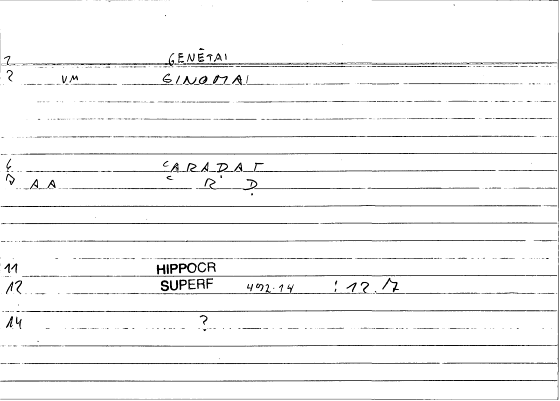 2 GENĒTAI
? VM GINOMAI
6 CARADAT
7 AA C R D
11 HIPPOCR
12 SUPERF 492.14 : 12.17
14 ?